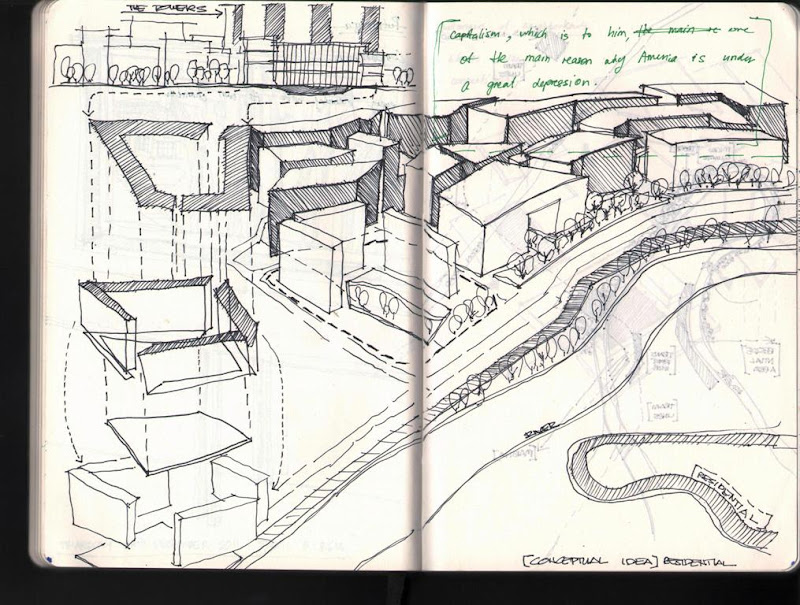 THE TOWERS
capitalism, which is to him, the main re one
of the main reason why America is under
a great depression.
RIVER
RESIDENTIAL
[CONCEPTUAL IDEA] RESIDENTIAL